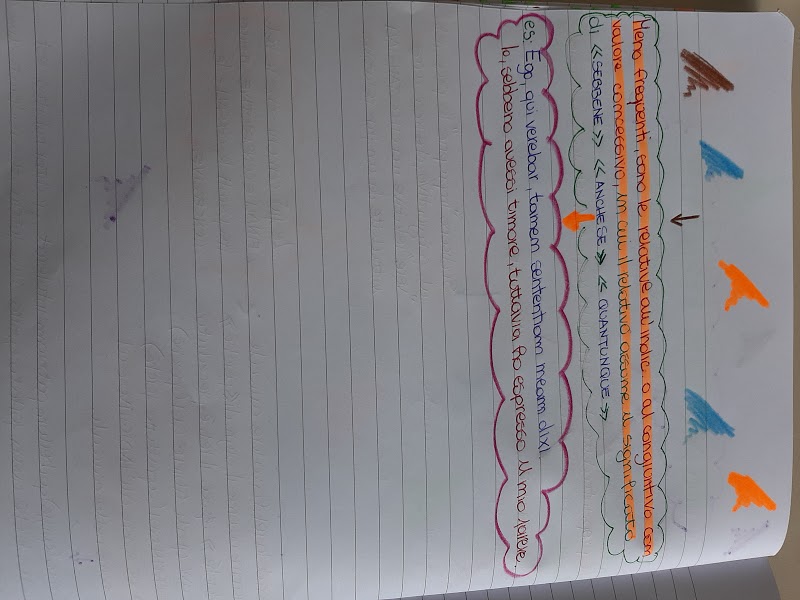 Meno frequenti, sono le relative all'indic. o al congiuntivo con
valore concessivo, in cui il relativo assume il significato
di «SEBBENE» «ANCHE SE» «QUANTUNQUE»
es: Ego, qui verebar, tamen sententiam meam dixi.
Io, sebbene avessi timore, tuttavia ho espresso il mio parere.